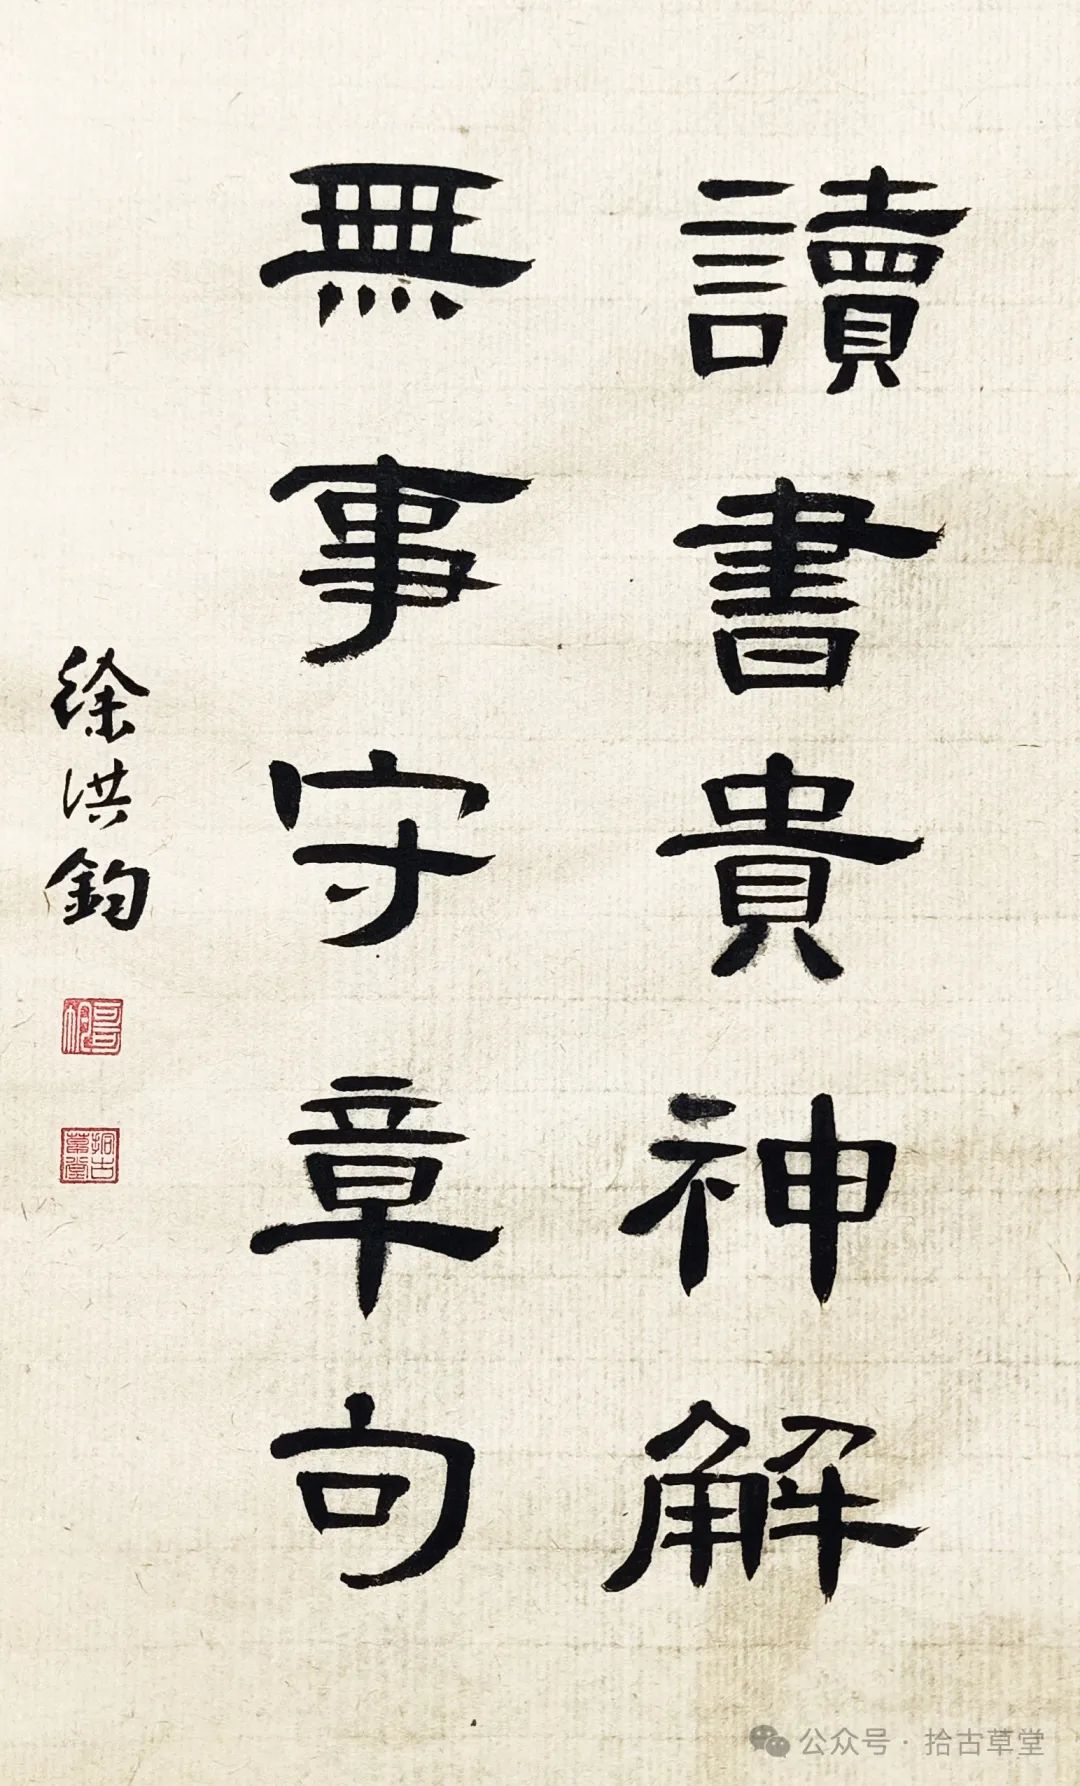 讀書貴神解
無事守章句
徐洪鈞
拾古草堂
公众号·拾古草堂